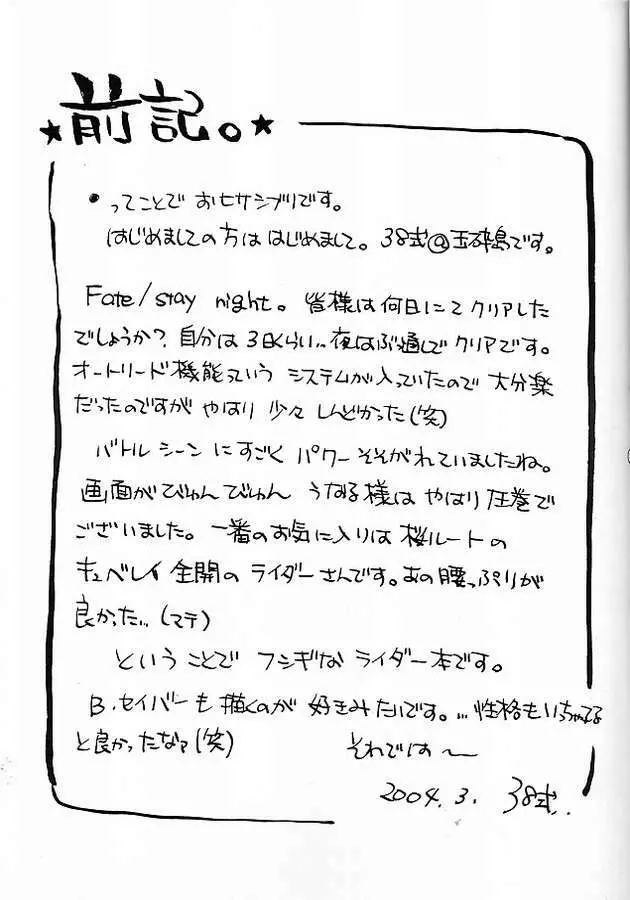 ★前記。★
・ってことで おヒサシブリです。
はじめましての方は はじめまして。38式@玉砕島です。
Fate/stay night。皆様は何日にてクリアした
でしょうか？自分は3日くらい..夜はぶっ通しでクリアです。
オートリード機能っていう システムが入っていたので 大分楽
だったのですが やはり 少々 しんどかった(笑)
バトルシーン にすごく パワー そそがれていましたね。
画面がびゅんびゅん うなる様は やはり圧巻で
ございました。一番のお気に入りは 桜ルートの
キュベレイ 全開の ライダーさんです。あの腰っぷりが
良かった... (マテ)
ということで フシギな ライダー本です。
B.セイバーも 描くのが 好きみたいです。...性格もいっちゃってる
と良かったなァ(笑) それでは〜
2004.3. 38式..